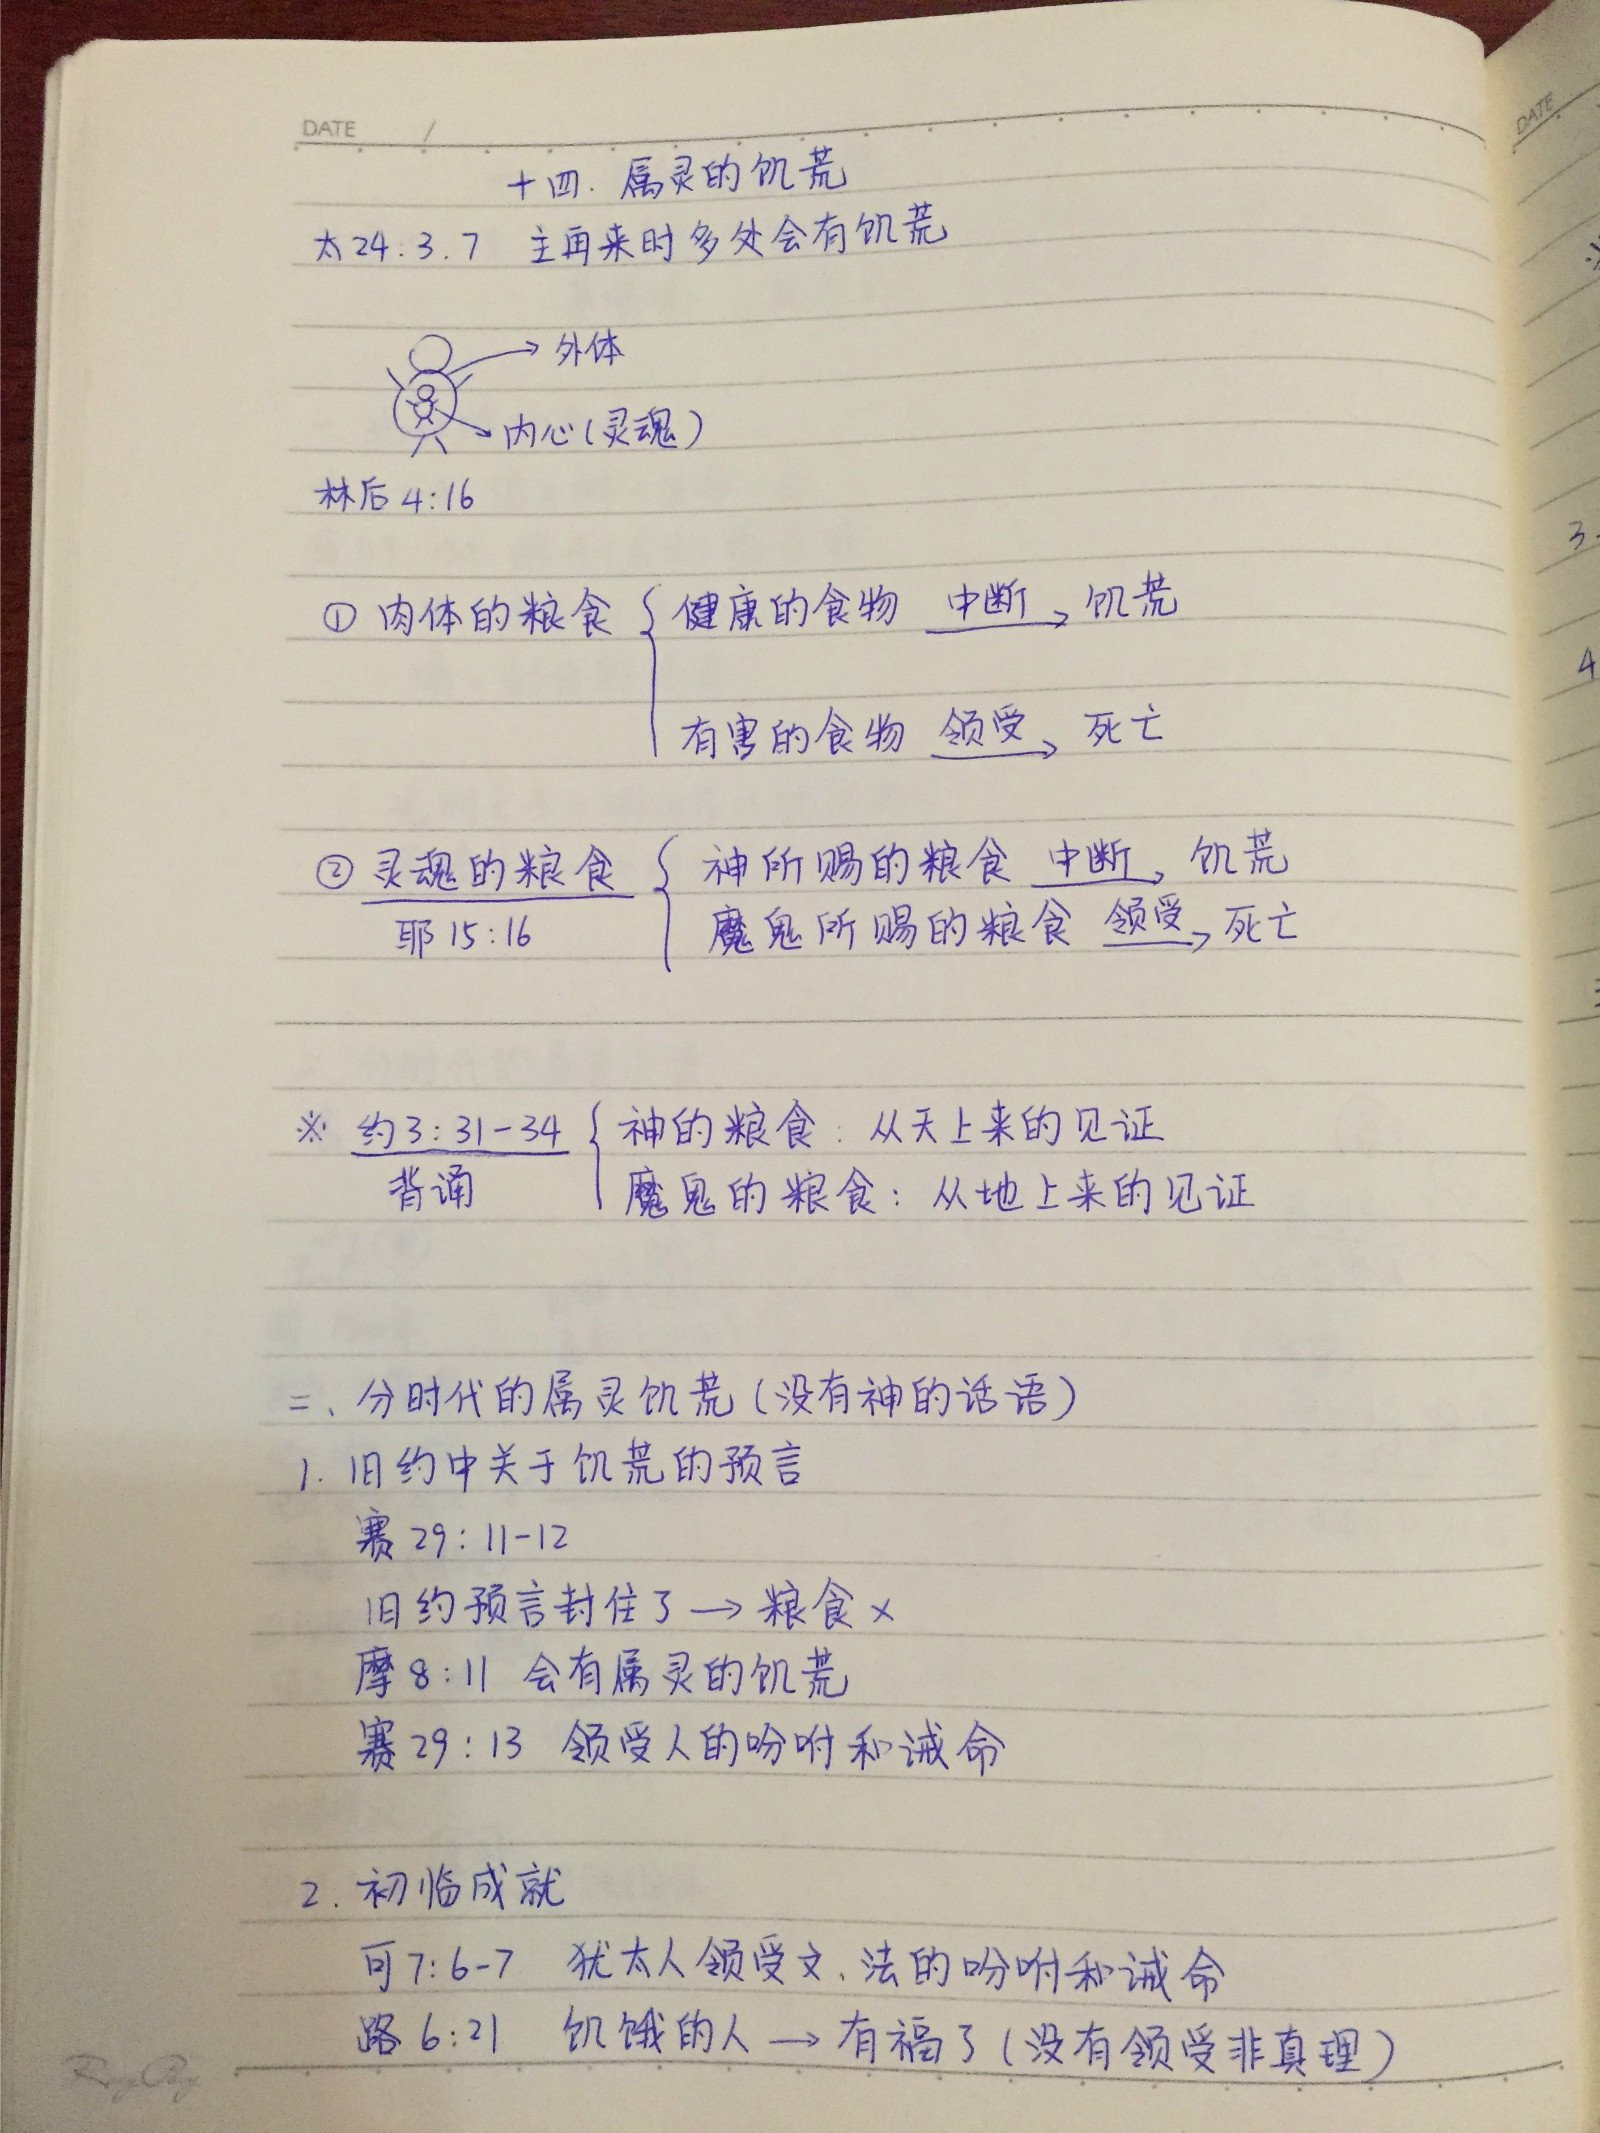 DATE /
十四. 属灵的饥荒
太24:3.7 主再来时多处会有饥荒
外体
内心(灵魂)
林后4:16
① 肉体的粮食 { 健康的食物 中断→ 饥荒
有害的食物 领受→ 死亡
② 灵魂的粮食 { 神所赐的粮食 中断→ 饥荒
耶15:16 魔鬼所赐的粮食 领受→ 死亡
※ 约3:31-34 { 神的粮食: 从天上来的见证
背诵 魔鬼的粮食: 从地上来的见证
二、分时代的属灵饥荒(没有神的话语)
1. 旧约中关于饥荒的预言
赛29:11-12
旧约预言封住了→粮食×
摩8:11 会有属灵的饥荒
赛29:13 领受人的吩咐和诫命
2. 初临成就
可7:6-7 犹太人领受文、法的吩咐和诫命
路6:21 饥饿的人→有福了(没有领受非真理)
DATE
3.
4